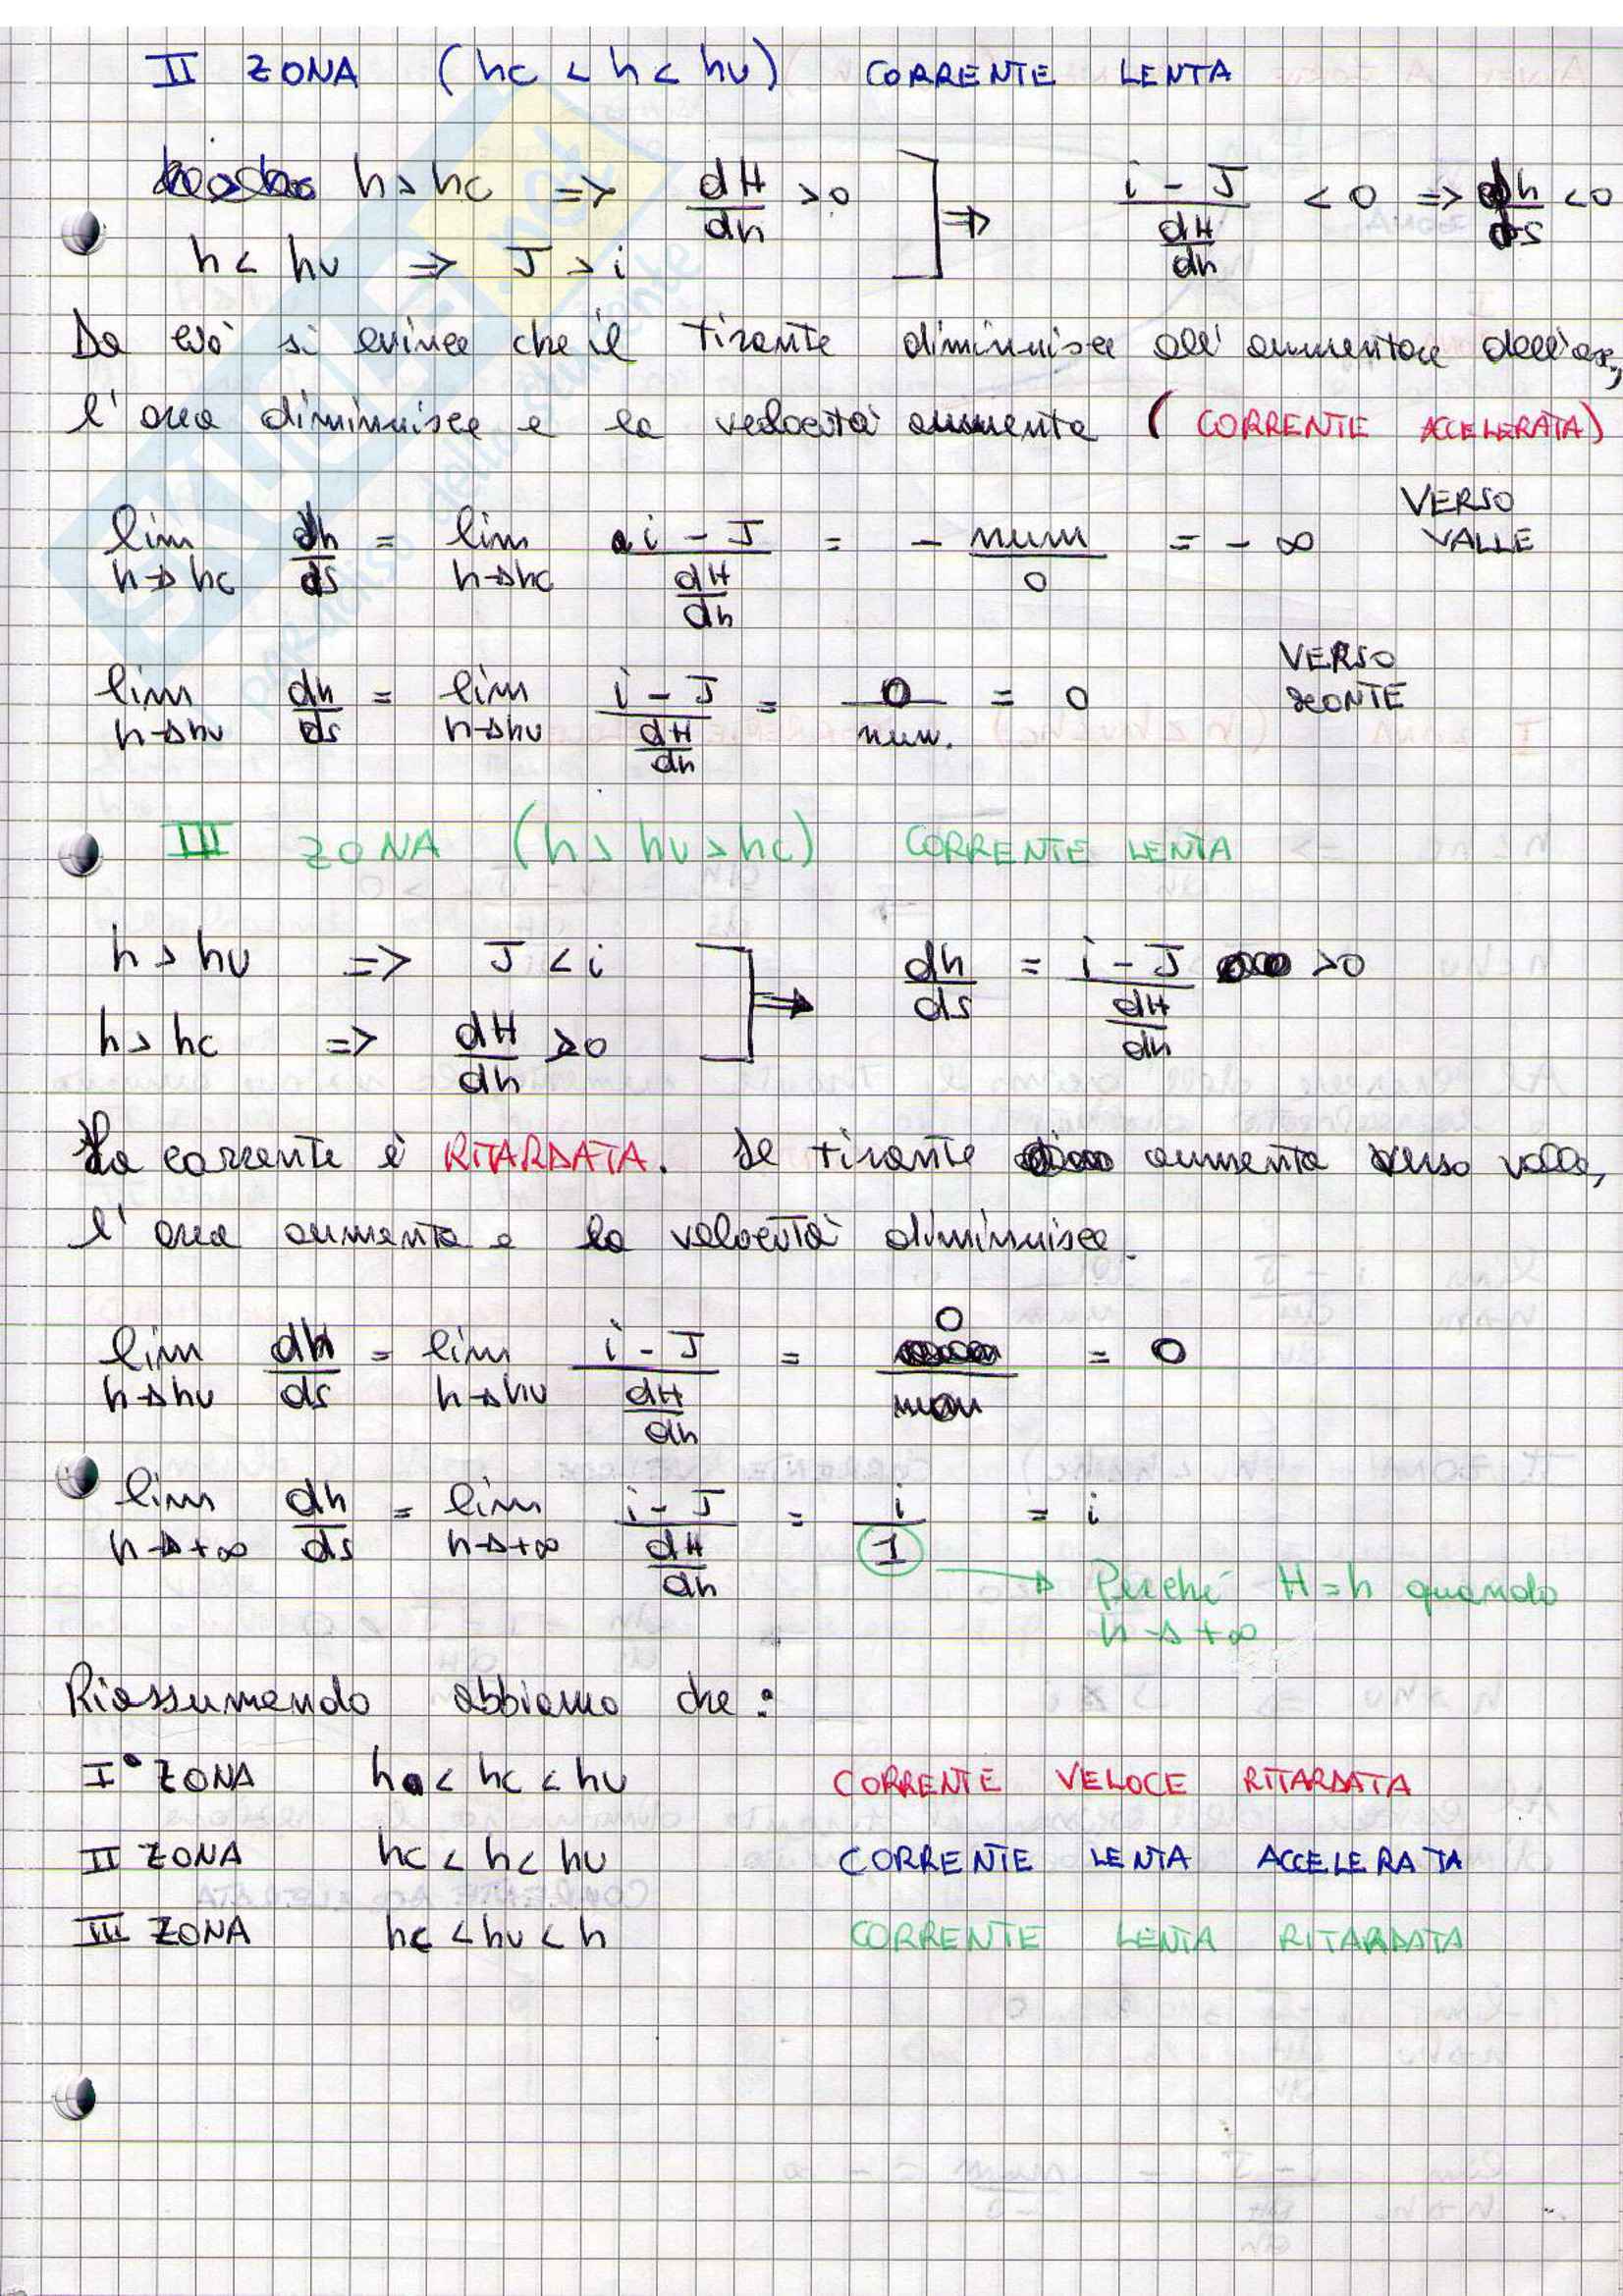 II ZONA (hc < h < hu) CORRENTE LENTA
h > hc => dH/dh > 0
h < hu => J > i
=> (i - J)/(dH/dh) < 0 => dh/ds < 0
Da ciò si evince che il tirante diminuisce all'aumentare dell'asc,
l'area diminuisce e la velocità aumenta (CORRENTE ACCELERATA)
lim h→hc dh/ds = lim h→hc (i - J)/(dH/dh) = - num/0 = - ∞ VERSO VALLE
lim h→hu dh/ds = lim h→hu (i - J)/(dH/dh) = 0/num. = 0 VERSO MONTE
III ZONA (h > hu > hc) CORRENTE LENTA
h > hu => J < i
h > hc => dH/dh > 0
=> dh/ds = (i - J)/(dH/dh) > 0
La corrente è RITARDATA. Il tirante aumenta verso valle,
l'area aumenta e la velocità diminuisce.
lim h→hu dh/ds = lim h→hu (i - J)/(dH/dh) = 0/num = 0
lim h→+∞ dh/ds = lim h→+∞ (i - J)/(dH/dh) = i/1 = i
→ Perché H = h quando
h → +∞
Riassumendo abbiamo che:
I° ZONA h < hc < hu CORRENTE VELOCE RITARDATA
II ZONA hc < h < hu CORRENTE LENTA ACCELERATA
III ZONA hc < hu < h CORRENTE LENTA RITARDATA
SKUOLA.net
paradiso dello studente